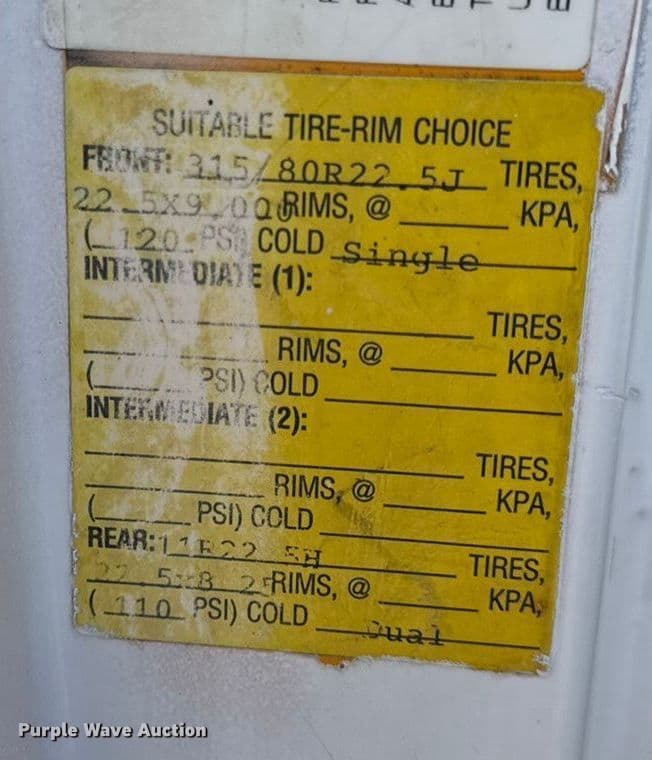 SUITABLE TIRE-RIM CHOICE
FRONT: 315/80R22.5J TIRES,
22.5X9.00 RIMS, @ ______ KPA,
( 120 PSI) COLD Single
INTERMEDIATE (1):
______ TIRES,
______ RIMS, @ ______ KPA,
(______ PSI) COLD ______
INTERMEDIATE (2):
______ TIRES,
______ RIMS, @ ______ KPA,
(______ PSI) COLD ______
REAR: 11R22.5H TIRES,
22.5x8.25 RIMS, @ ______ KPA,
( 110 PSI) COLD Dual
Purple Wave Auction